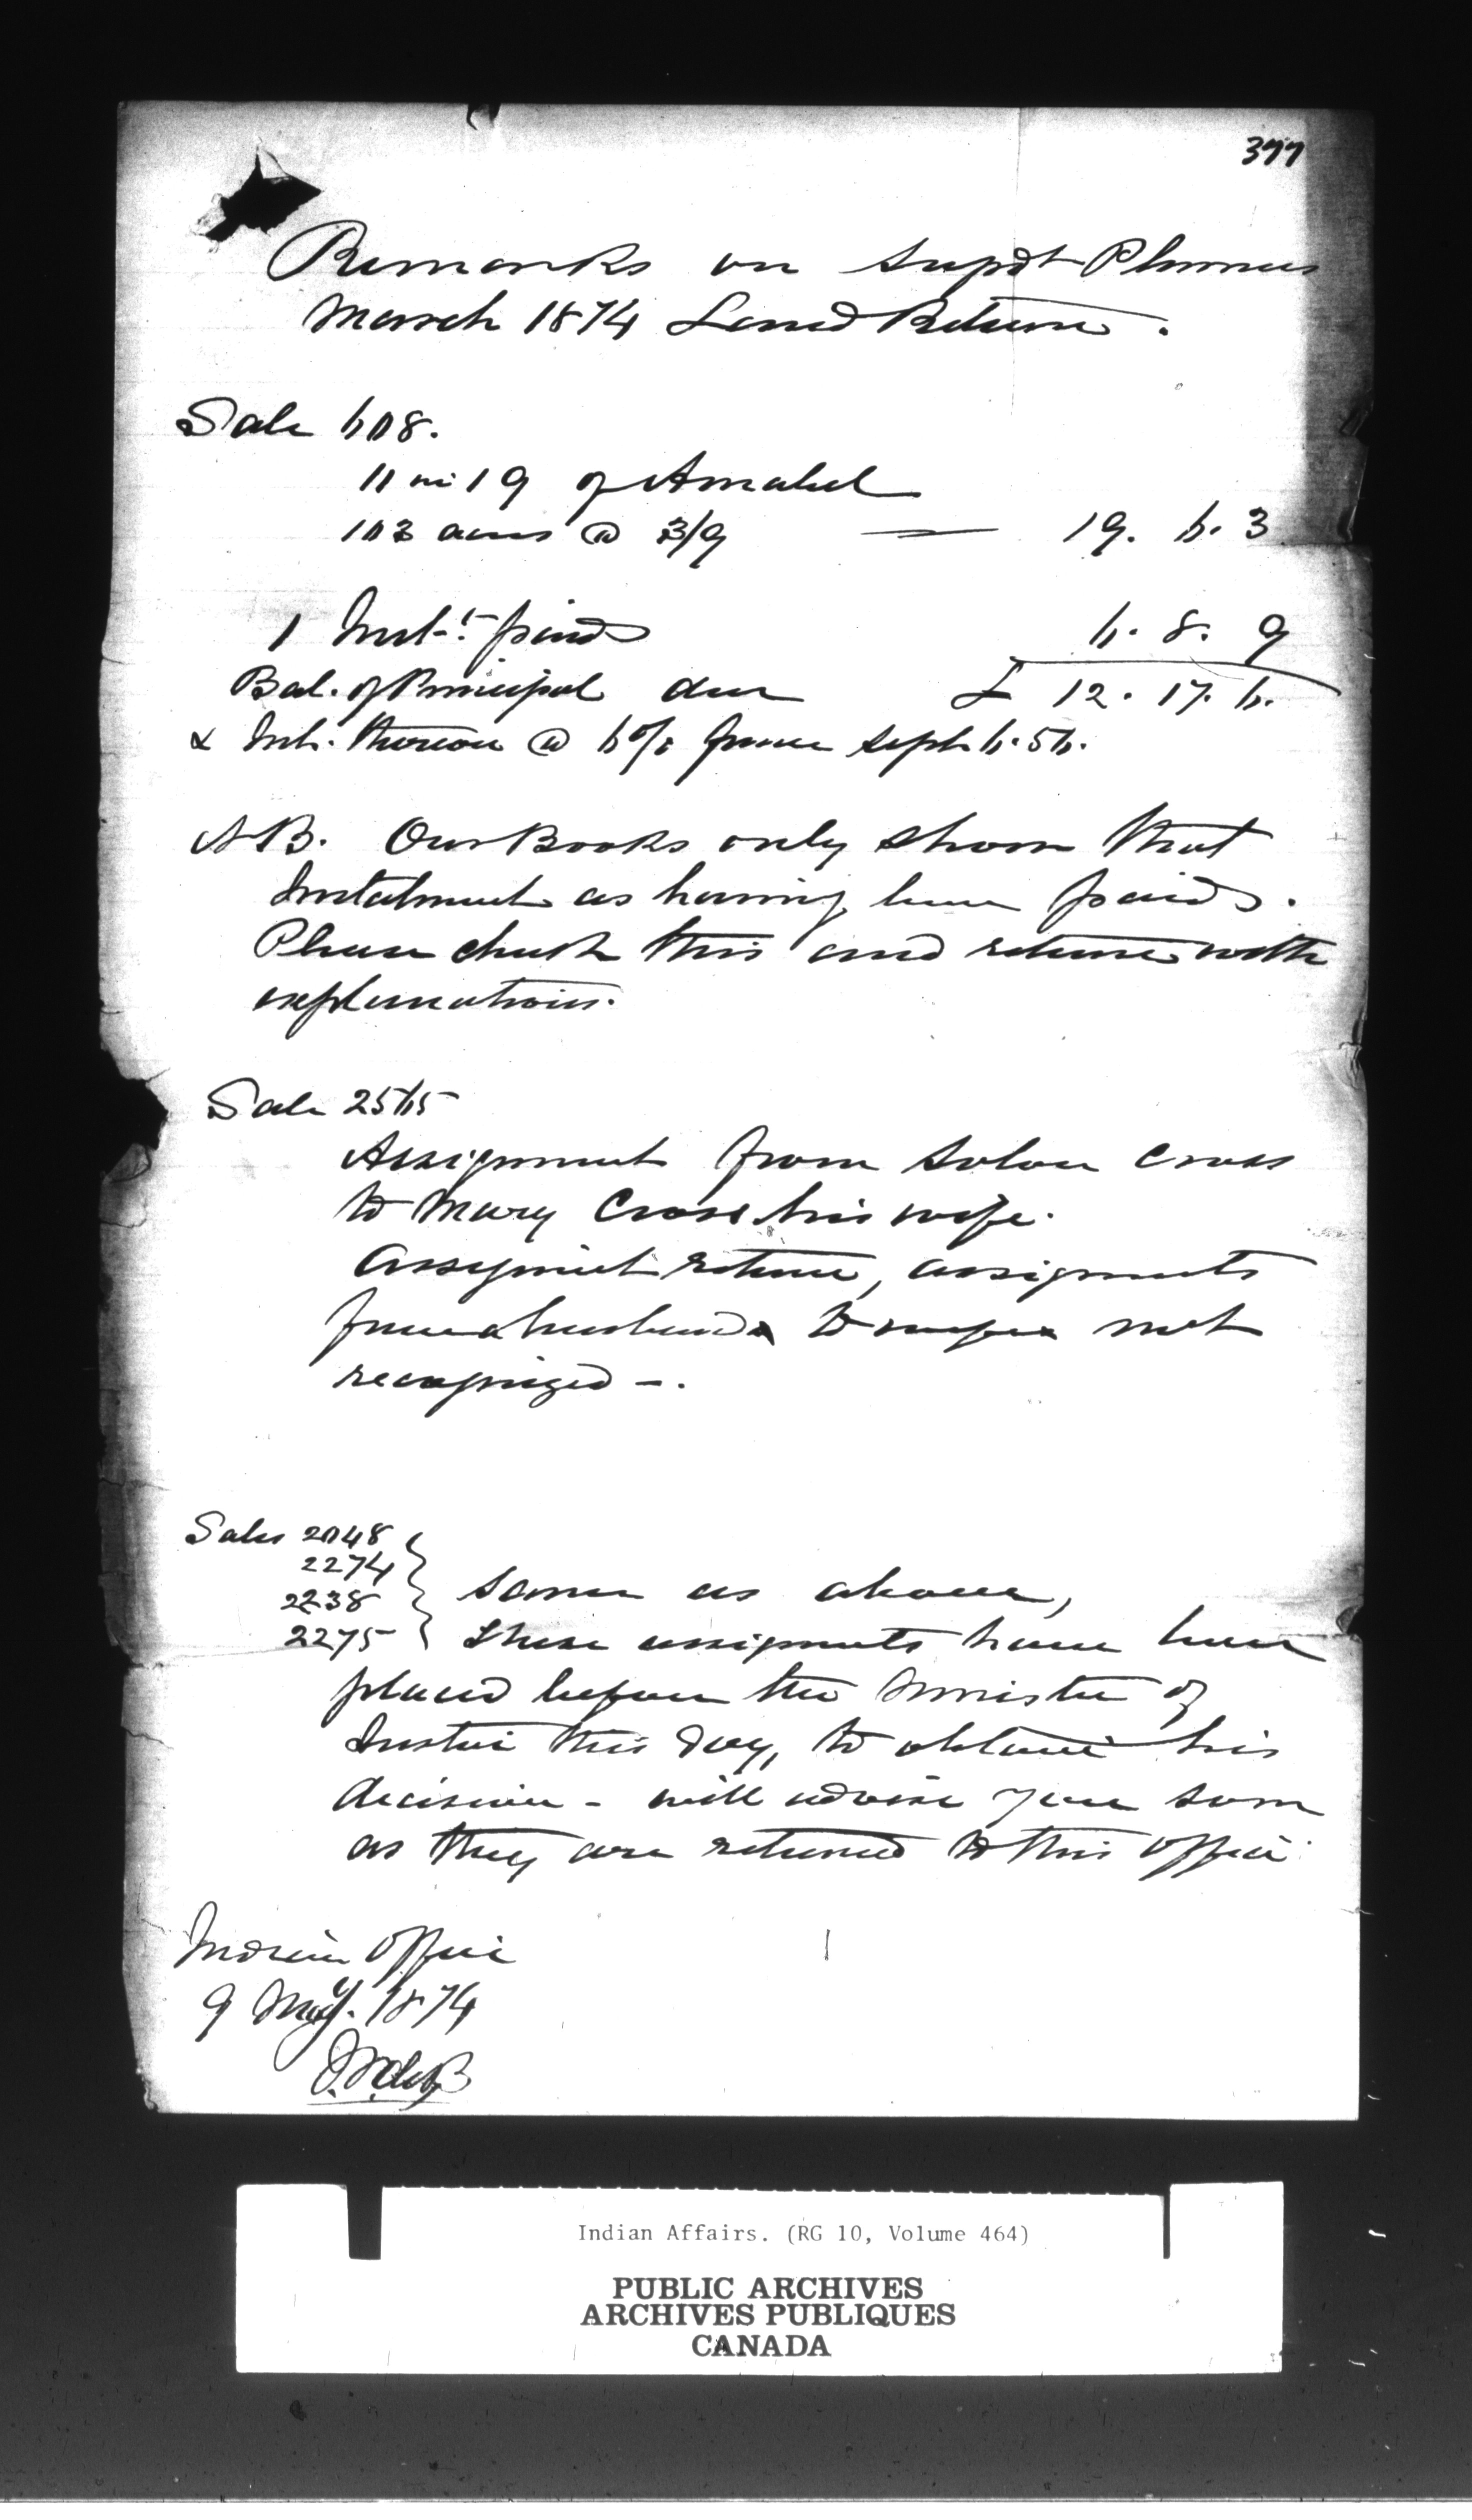 377
Remarks on Supdt Plummers
March 1874 Land Return.
Sale 608.
11 in 19 of Amabel
103 acres @ 3/9 — 19. 6. 3
1 Inst.t paid 6. 8. 9
Bal. of Principal due £ 12. 17. 6.
& Int. thereon @ 6% from Sept 6. 56.
NB. Our Books only show that
Instalment as having been paid.
Please check this and return with
explanation.
Sale 2565
Assignment from Solon Cross
to Mary Cross his wife.
Assignmt return, assignments
from husbands to wifes not
recognized —.
Sales 2048
2274
2238 Same as above,
2275 These assignmts have been
placed before the Minister of
Justice this day, to obtain his
decision - will advise you soon
as they are returned to this office
Indian Office
9 May. 1874
Indian Affairs. (RG 10, Volume 464)
PUBLIC ARCHIVES
ARCHIVES PUBLIQUES
CANADA